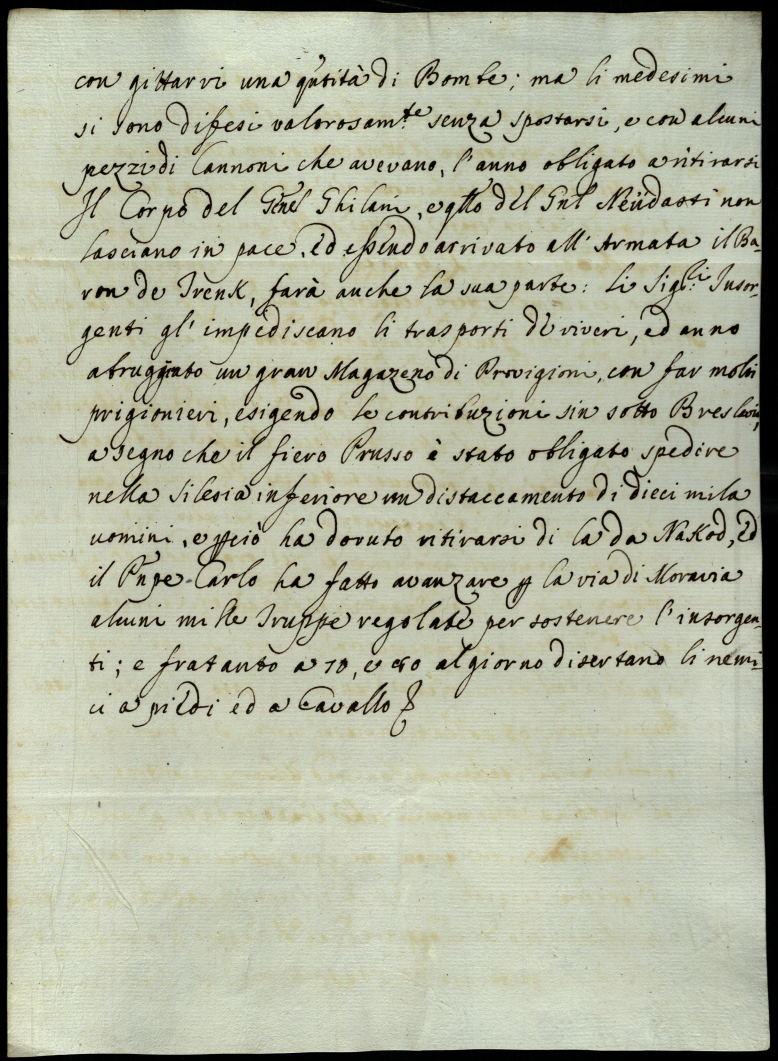 con gittarvi una q̃ntità di Bombe; ma li medesimi
si sono difesi valorosam.te senza spostarsi, e con alcuni
pezzi di Cannoni che avevano, l'anno obligato a ritirarsi
Il Corpo del Gẽnel Ghilani, e q̃llo del Gnl Neüdasti non
lasciano in pace. Ed essendo arrivato all'Armata il Ba-
ron de Trenk, farà anche la sua parte: li Sig.li Insor-
genti gl'impediscano li trasporti de viveri, ed anno
abruggiato un gran Magazeno di Provigioni, con far molti
prigionieri, esigendo le contribuzioni sin sotto Breslavia,
a segno che il fiero Prusso è stato obligato spedire
nella Silesia inferiore un distaccamento di dieci mila
uomini, e ꝑciò ha dovuto ritirarsi di là da Nakod, Ed
il Pñpe Carlo ha fatto avanzare ꝑ la via di Moravia
alcuni mille Truppe regolate per sostenere l'insorgen-
ti; e fratanto a 70, e 80 al giorno disertano li nemi-
ci a piedi ed a Cavallo